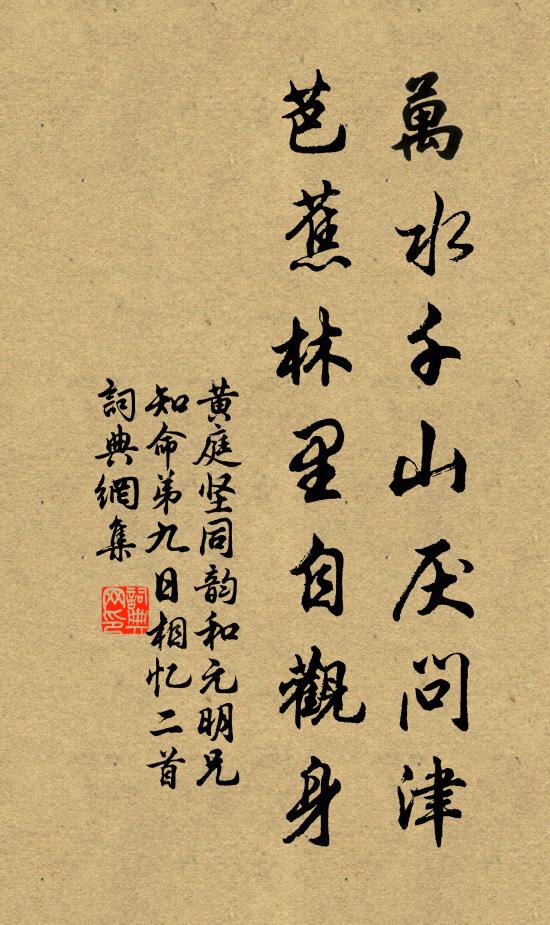 萬水千山厌問津
芭蕉林里自觀身
黄庭坚同韵和元明兄
知命弟九日相忆二首
詞典網集
詞典
网印